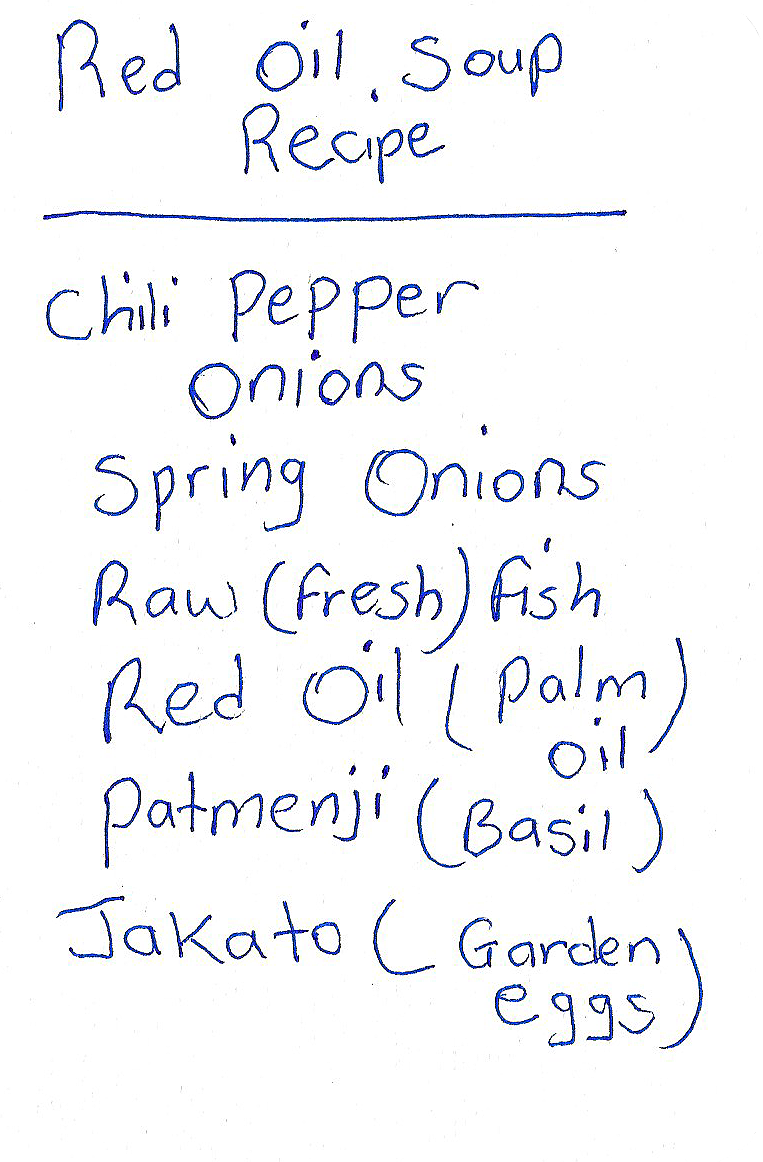 Red Oil Soup
Recipe
Chili Pepper
Onions
Spring Onions
Raw (fresh) fish
Red Oil (Palm
oil)
Patmenji (Basil)
Jakato (Garden
eggs)